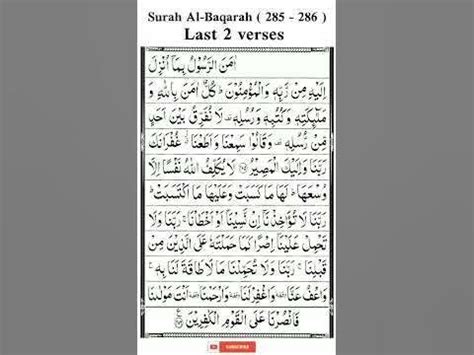 Surah Al-Baqarah ( 285 - 286 )
Last 2 verses
اٰمَنَ الرَّسُوْلُ بِمَاۤ اُنْزِلَ
اِلَيْهِ مِنْ رَّبِّهٖ وَالْمُؤْمِنُوْنَ ؕ كُلٌّ اٰمَنَ بِاللّٰهِ وَ
مَلٰٓئِكَتِهٖ وَكُتُبِهٖ وَرُسُلِهٖ لَا نُفَرِّقُ بَيْنَ اَحَدٍ
مِّنْ رُّسُلِهٖ وَقَالُوْا سَمِعْنَا وَاَطَعْنَا غُفْرَانَكَ
رَبَّنَا وَاِلَيْكَ الْمَصِيْرُ لَا يُكَلِّفُ اللّٰهُ نَفْسًا اِلَّا
وُسْعَهَا ؕ لَهَا مَا كَسَبَتْ وَعَلَيْهَا مَا اكْتَسَبَتْ ؕ
رَبَّنَا لَا تُؤَاخِذْنَاۤ اِنْ نَّسِيْنَاۤ اَوْ اَخْطَاْنَا ۚ رَبَّنَا وَلَا
تَحْمِلْ عَلَيْنَاۤ اِصْرًا كَمَا حَمَلْتَهٗ عَلَى الَّذِيْنَ مِنْ
قَبْلِنَا ۚ رَبَّنَا وَلَا تُحَمِّلْنَا مَا لَا طَاقَةَ لَنَا بِهٖ ۚ
وَاعْفُ عَنَّا وَاغْفِرْ لَنَا وَارْحَمْنَا اَنْتَ مَوْلٰىنَا
فَانْصُرْنَا عَلَى الْقَوْمِ الْكٰفِرِيْنَ
SUBSCRIBE